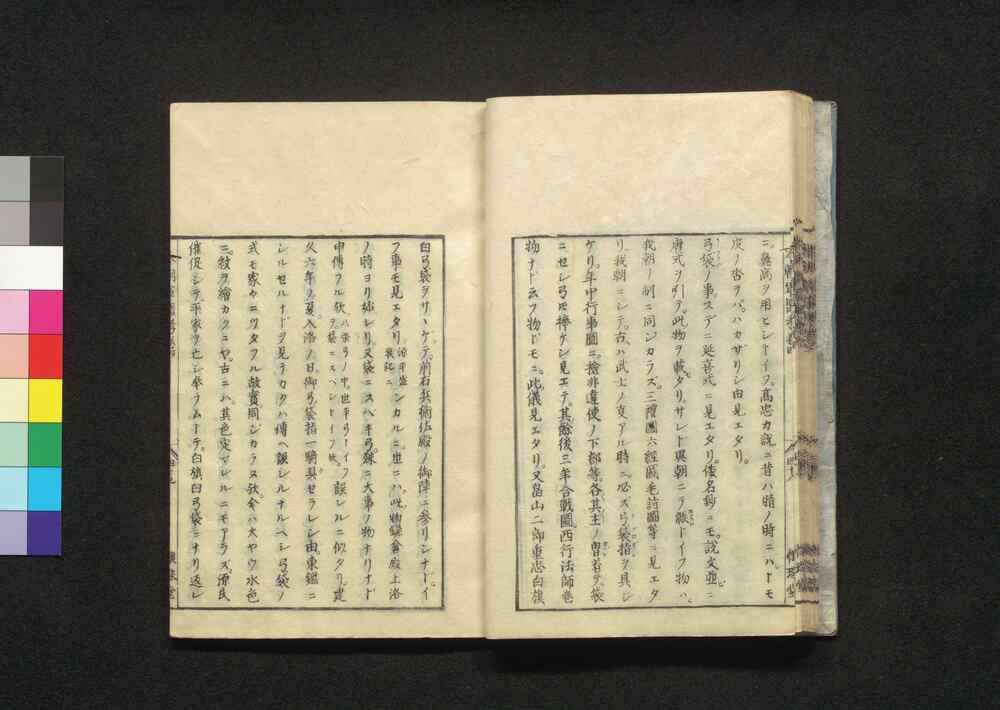 ニ。蘇芳ヲ用ヒシトイフ。高忠カ説ニ昔ハ晴ノ時ニハ。トモ
皮ノ沓ヲバ。ハカザリシ由見エタリ。
弓袋ノ事。スデニ延喜式ニ見エタリ。倭名鈔ニモ。説文並ニ
唐式ヲ引テ。此物ヲ載タリ。サレド異朝ニテ韔トイフ物ハ。
我朝ノ制ニ同シカラズ。三禮圖六經圖毛詩圖等ニ見エタ
リ。我朝ニシテ。古ハ武士ノ変アル時ニ。必ズ弓袋指ヲ具シ
ケリ。年中行事圖ニ。検非違使ノ下部等。各其主ノ冑着テ。袋
ニセシ弓ヒ捧ケシ見エテ。其餘後三年合戰圖。西行法師巻
物ナド云フ物ドモニ。此儀見エタリ。又畠山二郎重忠白旗
白弓袋ヲサヽゲテ。前右兵衛佐殿ノ御陣ニ参リシナド。イ
フ事モ見エタリ。源平盛衰記ニ シカルニ。世ニハ。此物鎌倉殿上洛
ノ時ヨリ始レリ。又袋ニスヘキ弓。殊ニ大事ノ物ナリナド
申傳フル歟。ハ柴弓ノ中世平弓トイフ袋ニスベシトイフ歟。 誤レルニ似タリ。建
久六年ノ夏。入洛ノ日。御弓袋指一騎具セラレシ由。東鑑ニ
シルセルナドヲ見テ。カタハ傳ヘ誤レルナルヘシ。弓袋ノ
式モ家々ニツタフル故實同シカラス歟。今ハ大ヤウ水色
ニ。紋ヲ繪カクニヤ。古ニハ。其色定マレルニモアラズ。源氏
催促シテ。平家ヲ亡シ奉ラムトテ。白旗白弓袋ニナリ返レ